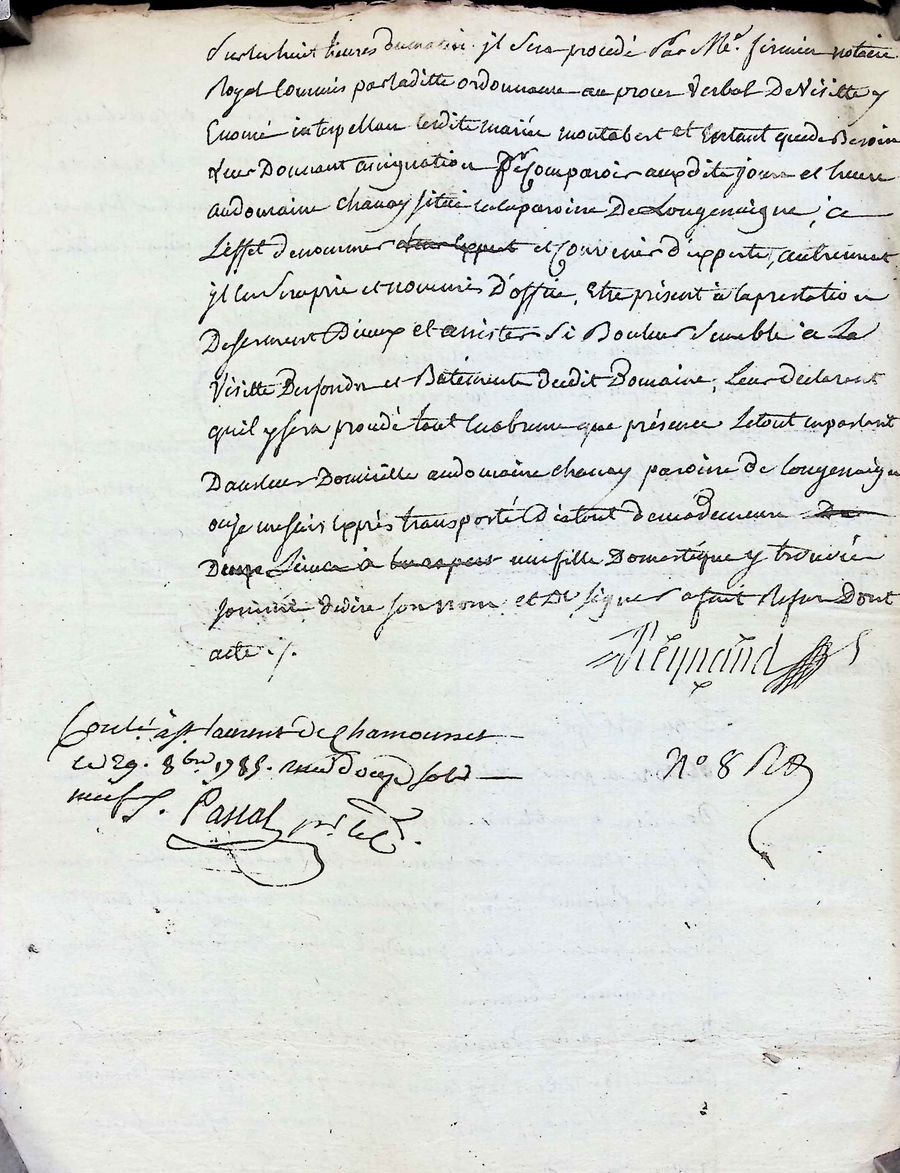 Sur les huit heures du matin jl sera procedé Par Me. firmin notaire
Royal Commis par laditte ordonnance au procès Verbal De Visitte y
Enoncé interpellan lesdits mariés montabert et Entant que de Besoin
Leur Donnant assignation pr. Comparoir auxdits jour et heure
au domaine chavay situé en la paroisse De Longessaigne, a
Leffet de nommer et Convenir d'experts, autrement
jl en sera pris et nommés D'office, Etre présent à la prestation
De serment Diceux et assister si Bon leur semble a La
Visitte Des fonds et Bâtiments dudit Domaine, Leur declarant
qu'il y sera procédé tant en absence que présence Le tout en parlant
Dans leur Domicille au domaine chavay paroisse de Longessaigne
ou je me suis exprès transporté distant de ma demeure
Lieues à une fille Domestique y trouvée
sommée de dire son nom et de signer a fait Refus Dont
acte ./.
Reynaud
Conlé à st laurent de Chamousset
le 29. 8bre 1785. reçu douze sols
neuf d. Pascal
No 8 Ro